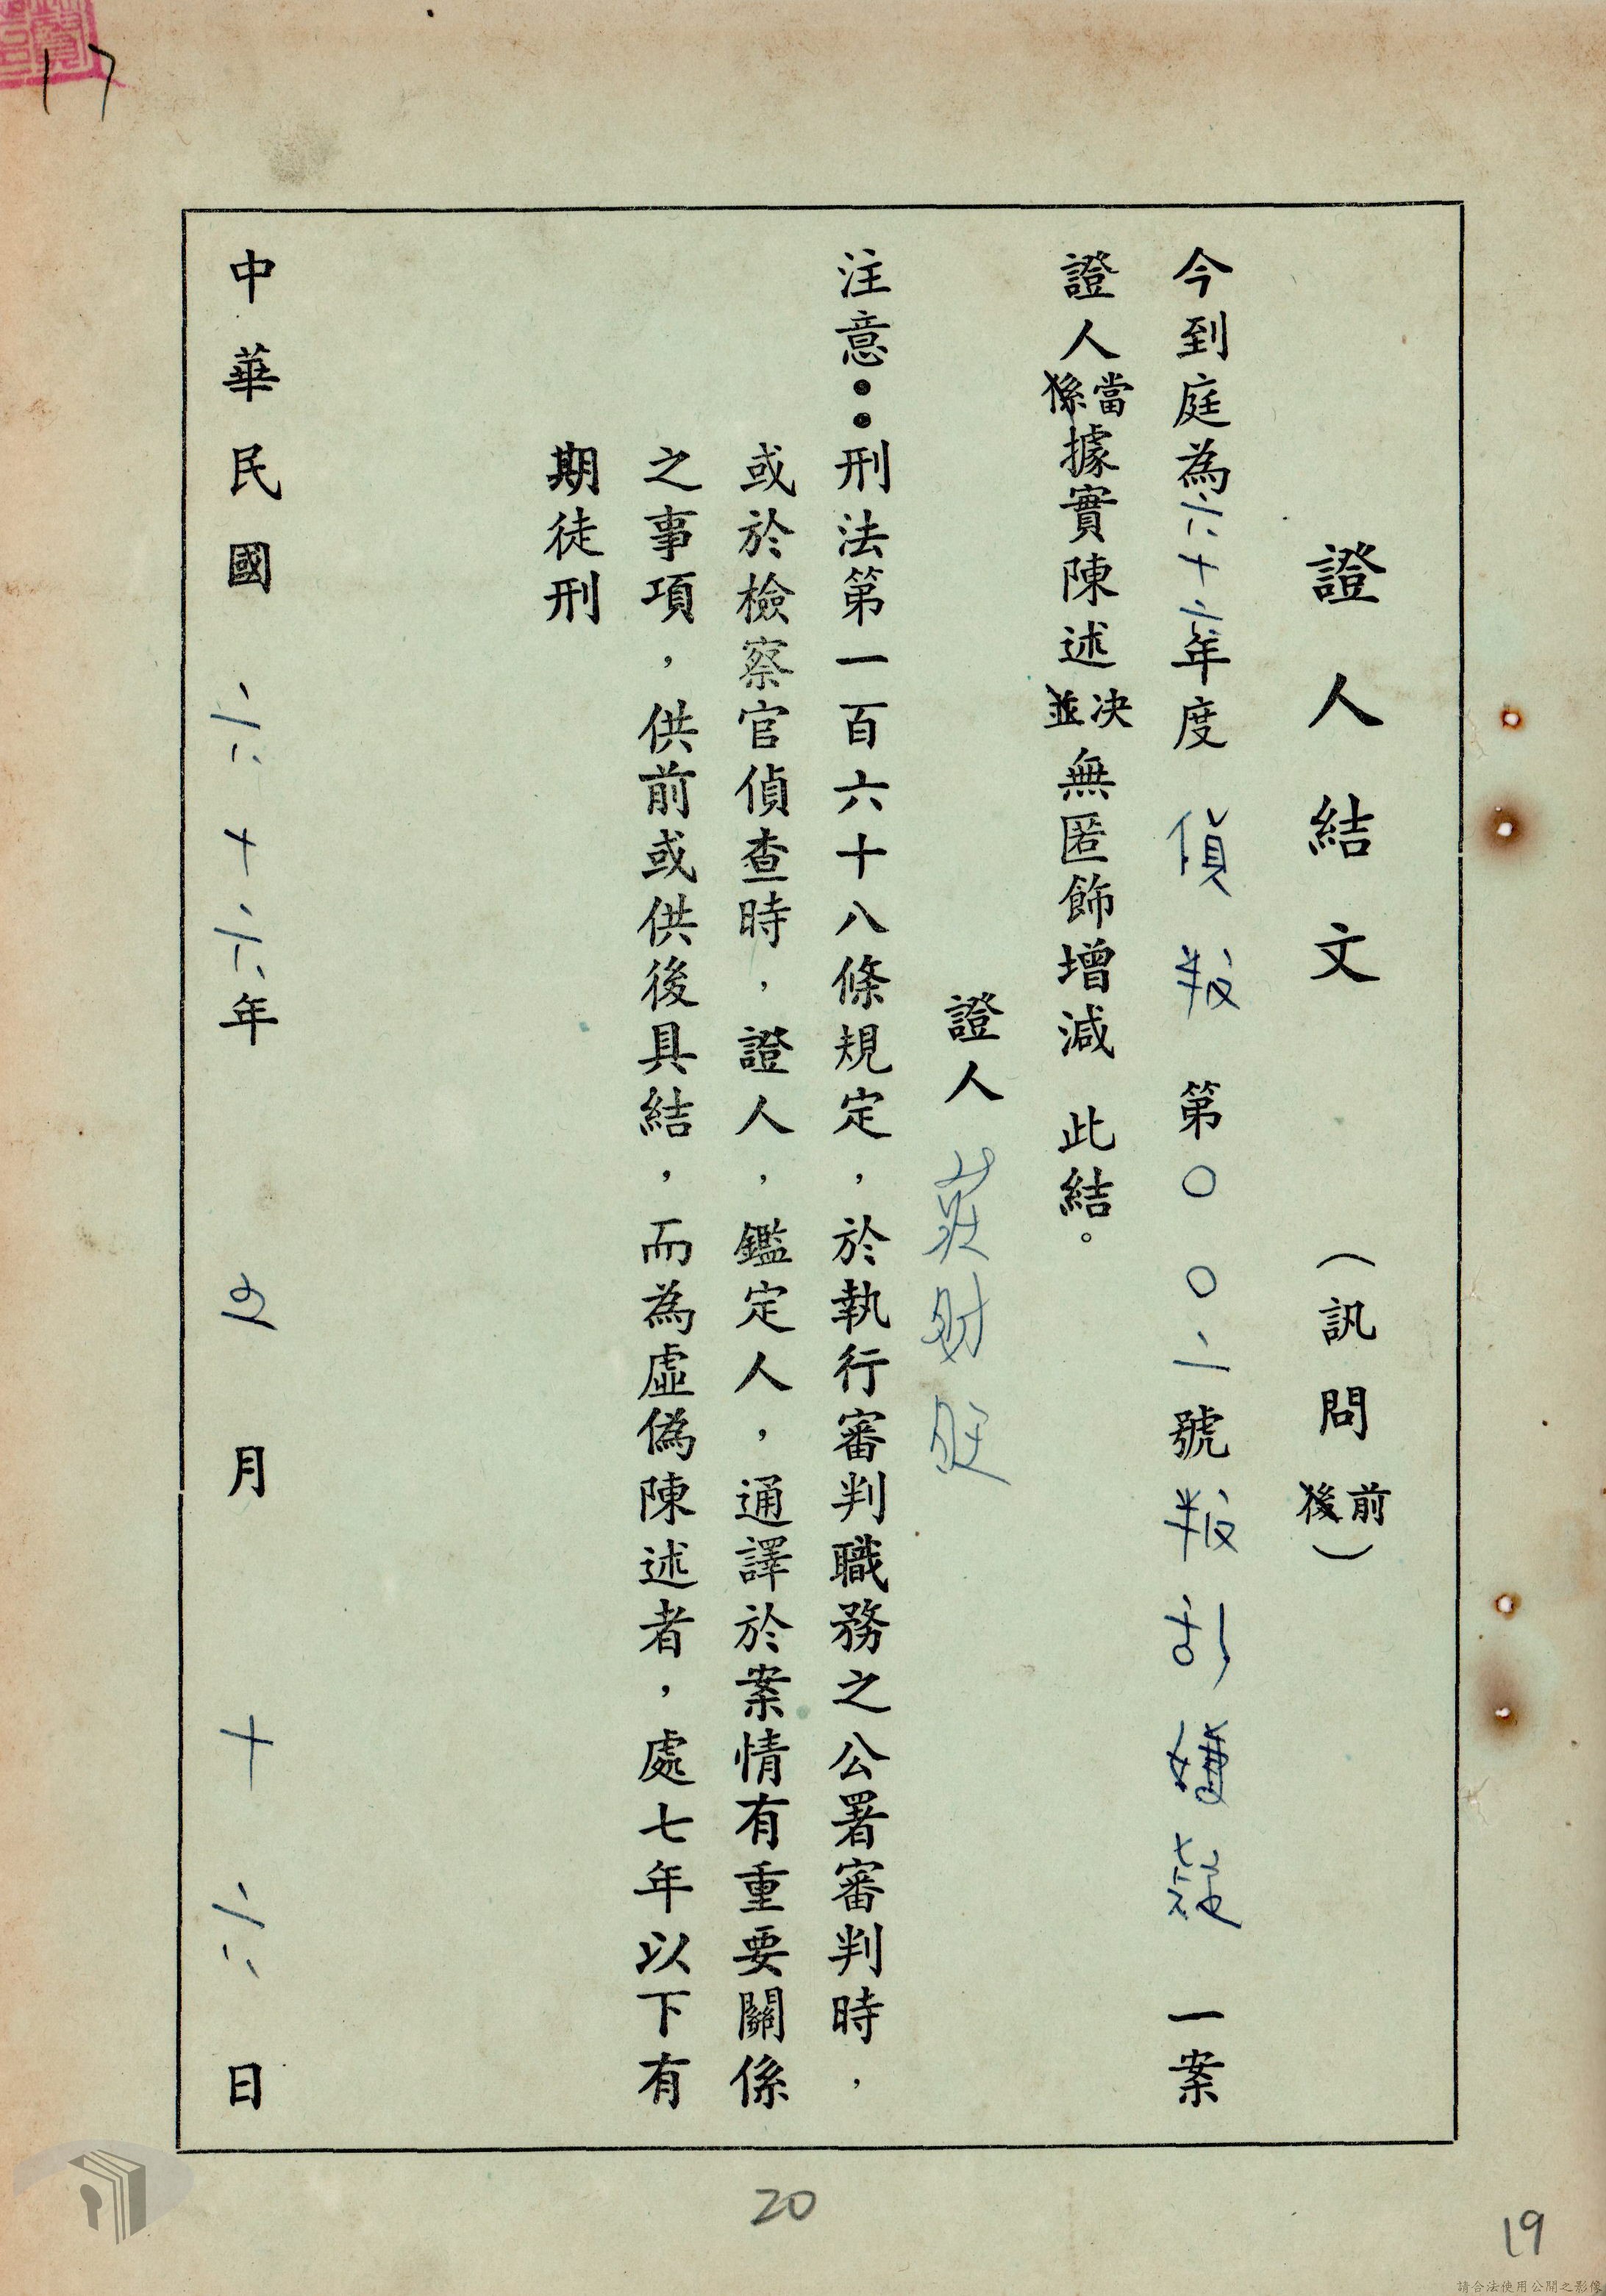 17
證人結文 （訊問前後）
今到庭為六十六年度 偵叛 第〇〇二號叛乱嫌疑 一案
證人當係據實陳述決並無匿飾增減 此結。
證人 莊財
注意：刑法第一百六十八條規定，於執行審判職務之公署審判時，
或於檢察官偵查時，證人，鑑定人，通譯於案情有重要關係
之事項，供前或供後具結，而為虛偽陳述者，處七年以下有
期徒刑
中華民國六十六年五月十六日
20
19
請合法使用公開之影像